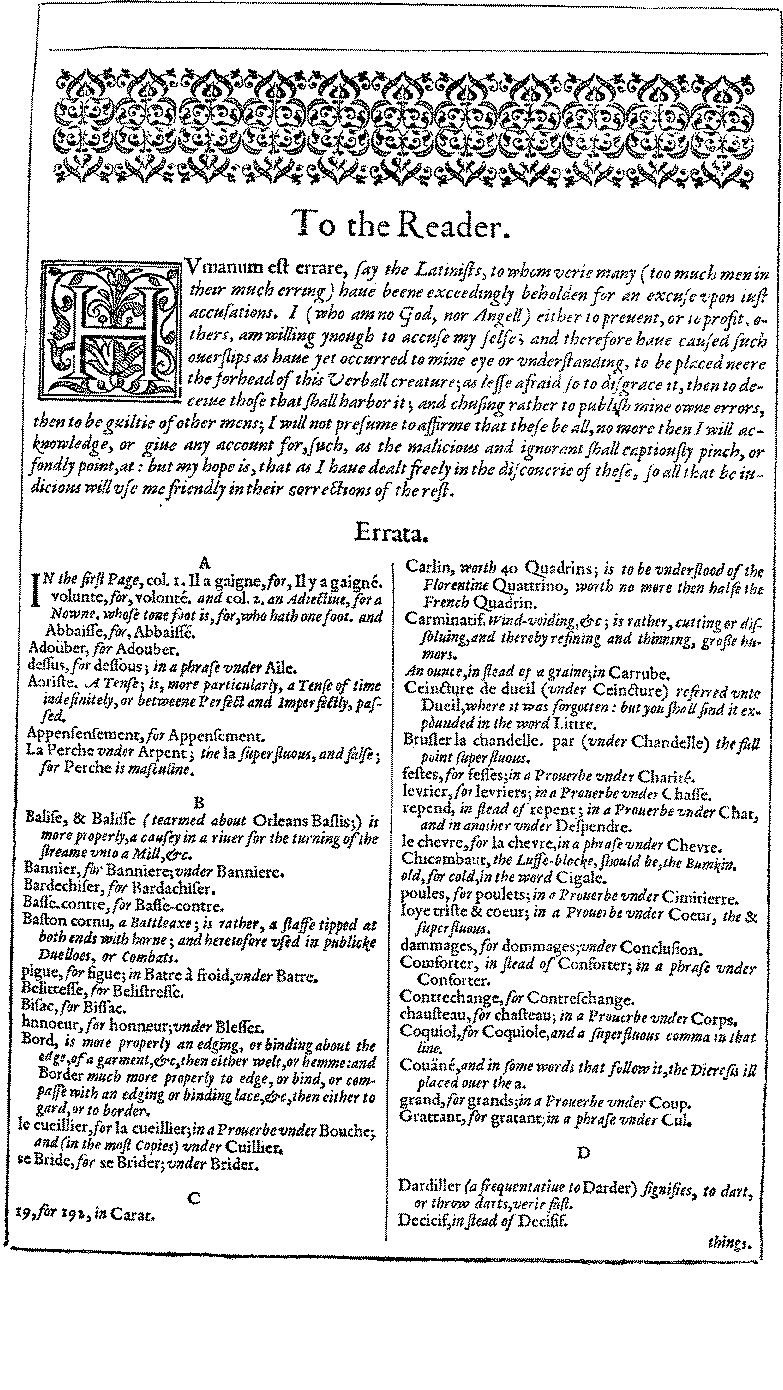 To the Reader.
HVmanum est errare, say the Latinists, to whom verie many (too much men in
their much erring) haue beene exceedingly beholden for an excuse vpon iust
accusations. I (who am no God, nor Angell) either to preuent, or to profit, o-
thers, am willing ynough to accuse my selfe; and therefore haue caused such
ouerslips as haue yet occurred to mine eye or vnderstanding, to be placed neere
the forhead of this Verball creature; as lesse afraid so to disgrace it, then to de-
ceiue those that shall harbor it; and chusing rather to publish mine owne errors,
then to be guiltie of other mens; I will not presume to affirme that these be all, no more then I will ac-
knowledge, or giue any account for, such, as the malicious and ignorant shall captiously pinch, or
fondly point, at: but my hope is, that as I haue dealt freely in the discouerie of these, so all that be iu-
dicious will vse me friendly in their corrections of the rest.
Errata.
A
IN the first Page, col. 1. Il a gaigne, for, Il y a gaigné.
volunte, for, volonté. and col. 2. an Adiectiue, for a
Nowne. whose tone foot is, for, who hath one foot. and
Abbaisse, for, Abbaissé.
Adoüber, for Adouber.
dessus, for dessous; in a phrase vnder Aile.
Aoriste. A Tense; is, more particularly, a Tense of time
indefinitely, or betweene Perfect and Imperfectly, pas-
sed.
Appensensement, for Appensement.
La Perche vnder Arpent; the la superfluous, and false;
for Perche is masculine.
B
Balise, & Balisse (tearmed about Orleans Baslis;) is
more properly, a causey in a riuer for the turning of the
streame vnto a Mill, &c.
Bannier, for Banniere; vnder Banniere.
Bardechiser, for Bardachiser.
Basse.contre, for Basse-contre.
Baston cornu, a Battleaxe; is rather, a staffe tipped at
both ends with horne; and heretofore vsed in publicke
Duelloes, or Combats.
pigue, for figue; in Batre à froid, vnder Batre.
Belitresse, for Belistresse.
Bisac, for Bissac.
hnnoeur, for honneur; vnder Blesser.
Bord, is more properly an edging, or binding about the
edge, of a garment, &c, then either welt, or hemme: and
Border much more properly to edge, or bind, or com-
passe with an edging or binding lace, &c, then either to
gard, or to border.
le cueillier, for la cueillier; in a Prouerbe vnder Bouche;
and (in the most Copies) vnder Cuillier.
se Bride, for se Brider; vnder Brider.
C
19, for 192, in Carat.
Carlin, worth 40 Quadrins; is to be vnderstood of the
Florentine Quattrino, worth no more then halfe the
French Quadrin.
Carminatif. Wind-voiding, &c; is rather, cutting or dis-
soluing, and thereby refining and thinning, grosse hu-
mors.
An ounce, in stead of a graine; in Carrube.
Ceincture de dueil (vnder Ceincture) referred vnto
Dueil, where it was forgotten: but you shall find it ex-
pounded in the word Littre.
Brusler la chandelle. par (vnder Chandelle) the full
point superfluous.
festes, for fesses; in a Prouerbe vnder Charité.
levrier, for levriers; in a Prouerbe vnder Chasse.
repend, in stead of repent; in a Prouerbe vnder Chat,
and in another vnder Despendre.
le chevre, for la chevre, in a phrase vnder Chevre.
Chicambaut, the Luffe-blocke, should be, the Bumkin.
old, for cold, in the word Cigale.
poules, for poulets; in a Prouerbe vnder Cimitierre.
Ioye triste & coeur; in a Prouerbe vnder Coeur, the &
superfluous.
dammages, for dommages; vnder Conclusion.
Comforter, in stead of Conforter; in a phrase vnder
Conforter.
Contrechange, for Contreschange.
chausteau, for chasteau; in a Prouerbe vnder Corps.
Coquiol, for Coquiole, and a superfluous comma in that
line.
Couäné, and in some words that follow it, the Dieresis ill
placed ouer the a.
grand, for grands; in a Prouerbe vnder Coup.
Grattant, for gratant; in a phrase vnder Cul.
D
Dardiller (a frequentatiue to Darder) signifies, to dart,
or throw darts, verie fast.
Decicif, in stead of Decisif.
things.